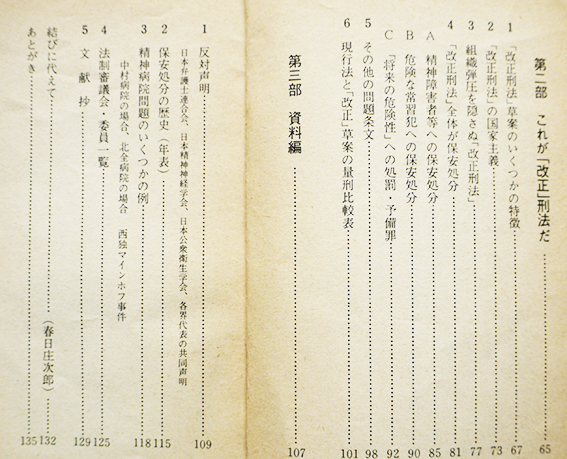 第二部 これが「改正」刑法だ……65
1 「改正刑法」草案のいくつかの特徴……67
2 「改正刑法」の国家主義……73
3 組織弾圧を隠さぬ「改正刑法」……77
4 「改正刑法」全体が保安処分……81
A 精神障害者等への保安処分……85
B 危険な常習犯への保安処分……90
C 「将来の危険性」への処罰・予備罪……92
5 その他の問題条文……98
6 現行法と「改正」草案の量刑比較表……101
第三部 資料編……107
1 反対声明……109
日本弁護士連合会、日本精神神経学会、日本公衆衛生学会、各界代表の共同声明
2 保安処分の歴史(年表)……115
3 精神病院問題のいくつかの例……118
中村病院の場合、北全病院の場合 西独マインホフ事件
4 法制審議会・委員一覧……125
5 文献抄……129
結びに代えて……(春日庄次郎)……132
あとがき……135